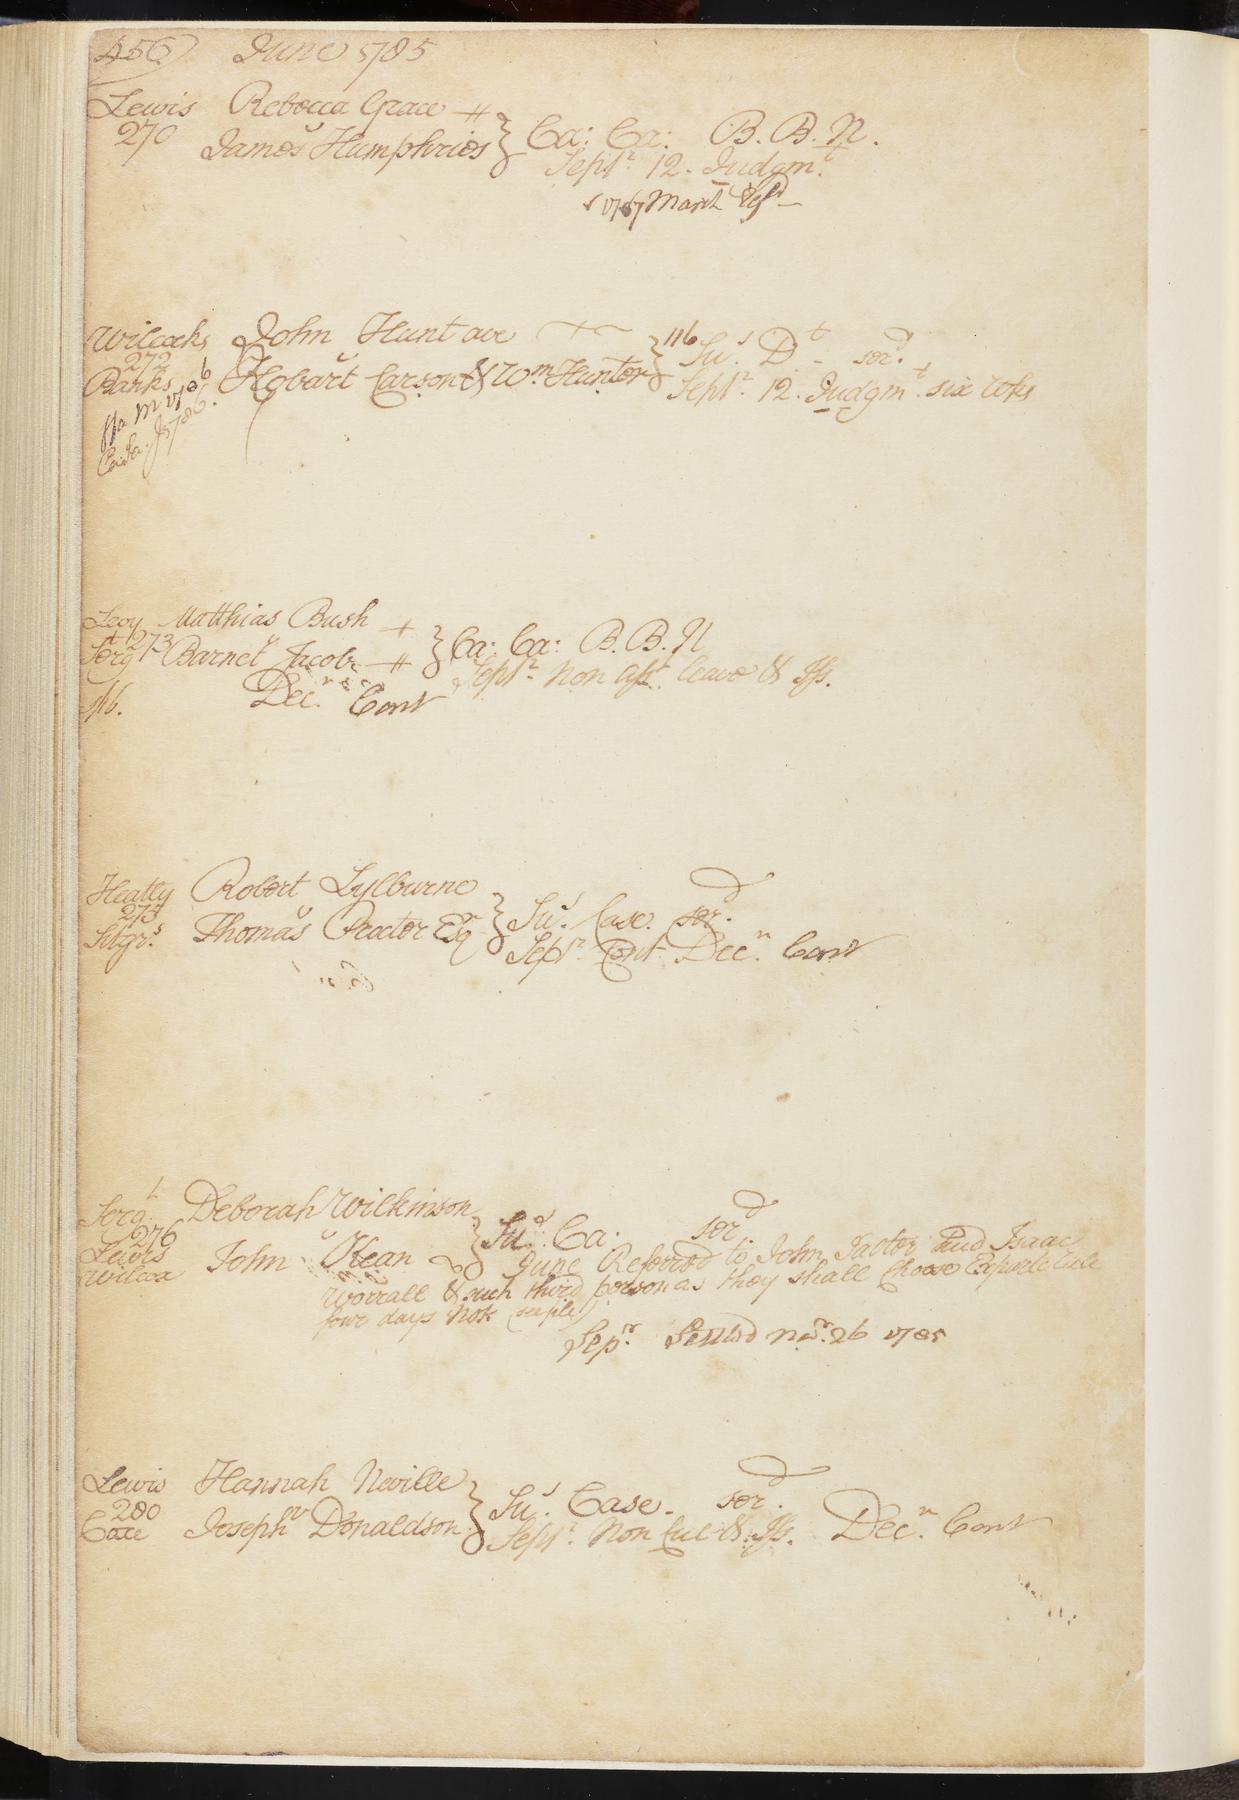 456 June 1785
Lewis Rebecca Grace
270 James Humphries } Ca: Ca: B. B. N.
Sept.r 12. Judgm.t
1787 March
Wilcocks John Hunt
272 116 Su.s D.t ser.d
Banks Robart Carson & Wm Hunter } Sept.r 12. Judgm.t six wks
1786
1786.
Levy Matthias Bush
273 Ca: Ca: B. B. N
Serg.t Barnet Jacobs } Sept.r Non ass.t leave & Iss.
116. Dec.r Cont
Heatly Robert Lylburne
275 Su.s Case. ser.d
Sitgr.s Thomas Proctor Esq.r } Sept.r Cont Dec.r Cont
Serg.t Deborah Wilkinson
276 Su.s Ca: ser.d
Lewis John Kean } June Referred to John and Isaac
Wilcox Worrall & such third person as they shall Choose Exparte rule
four days Not
Sep.r Settled Nov.r 26 1785
Lewis Hannah Neville
280 Su.s Case. ser.d
Joseph Donaldson } Sept.r Non Cul & Iss. Dec.r Cont